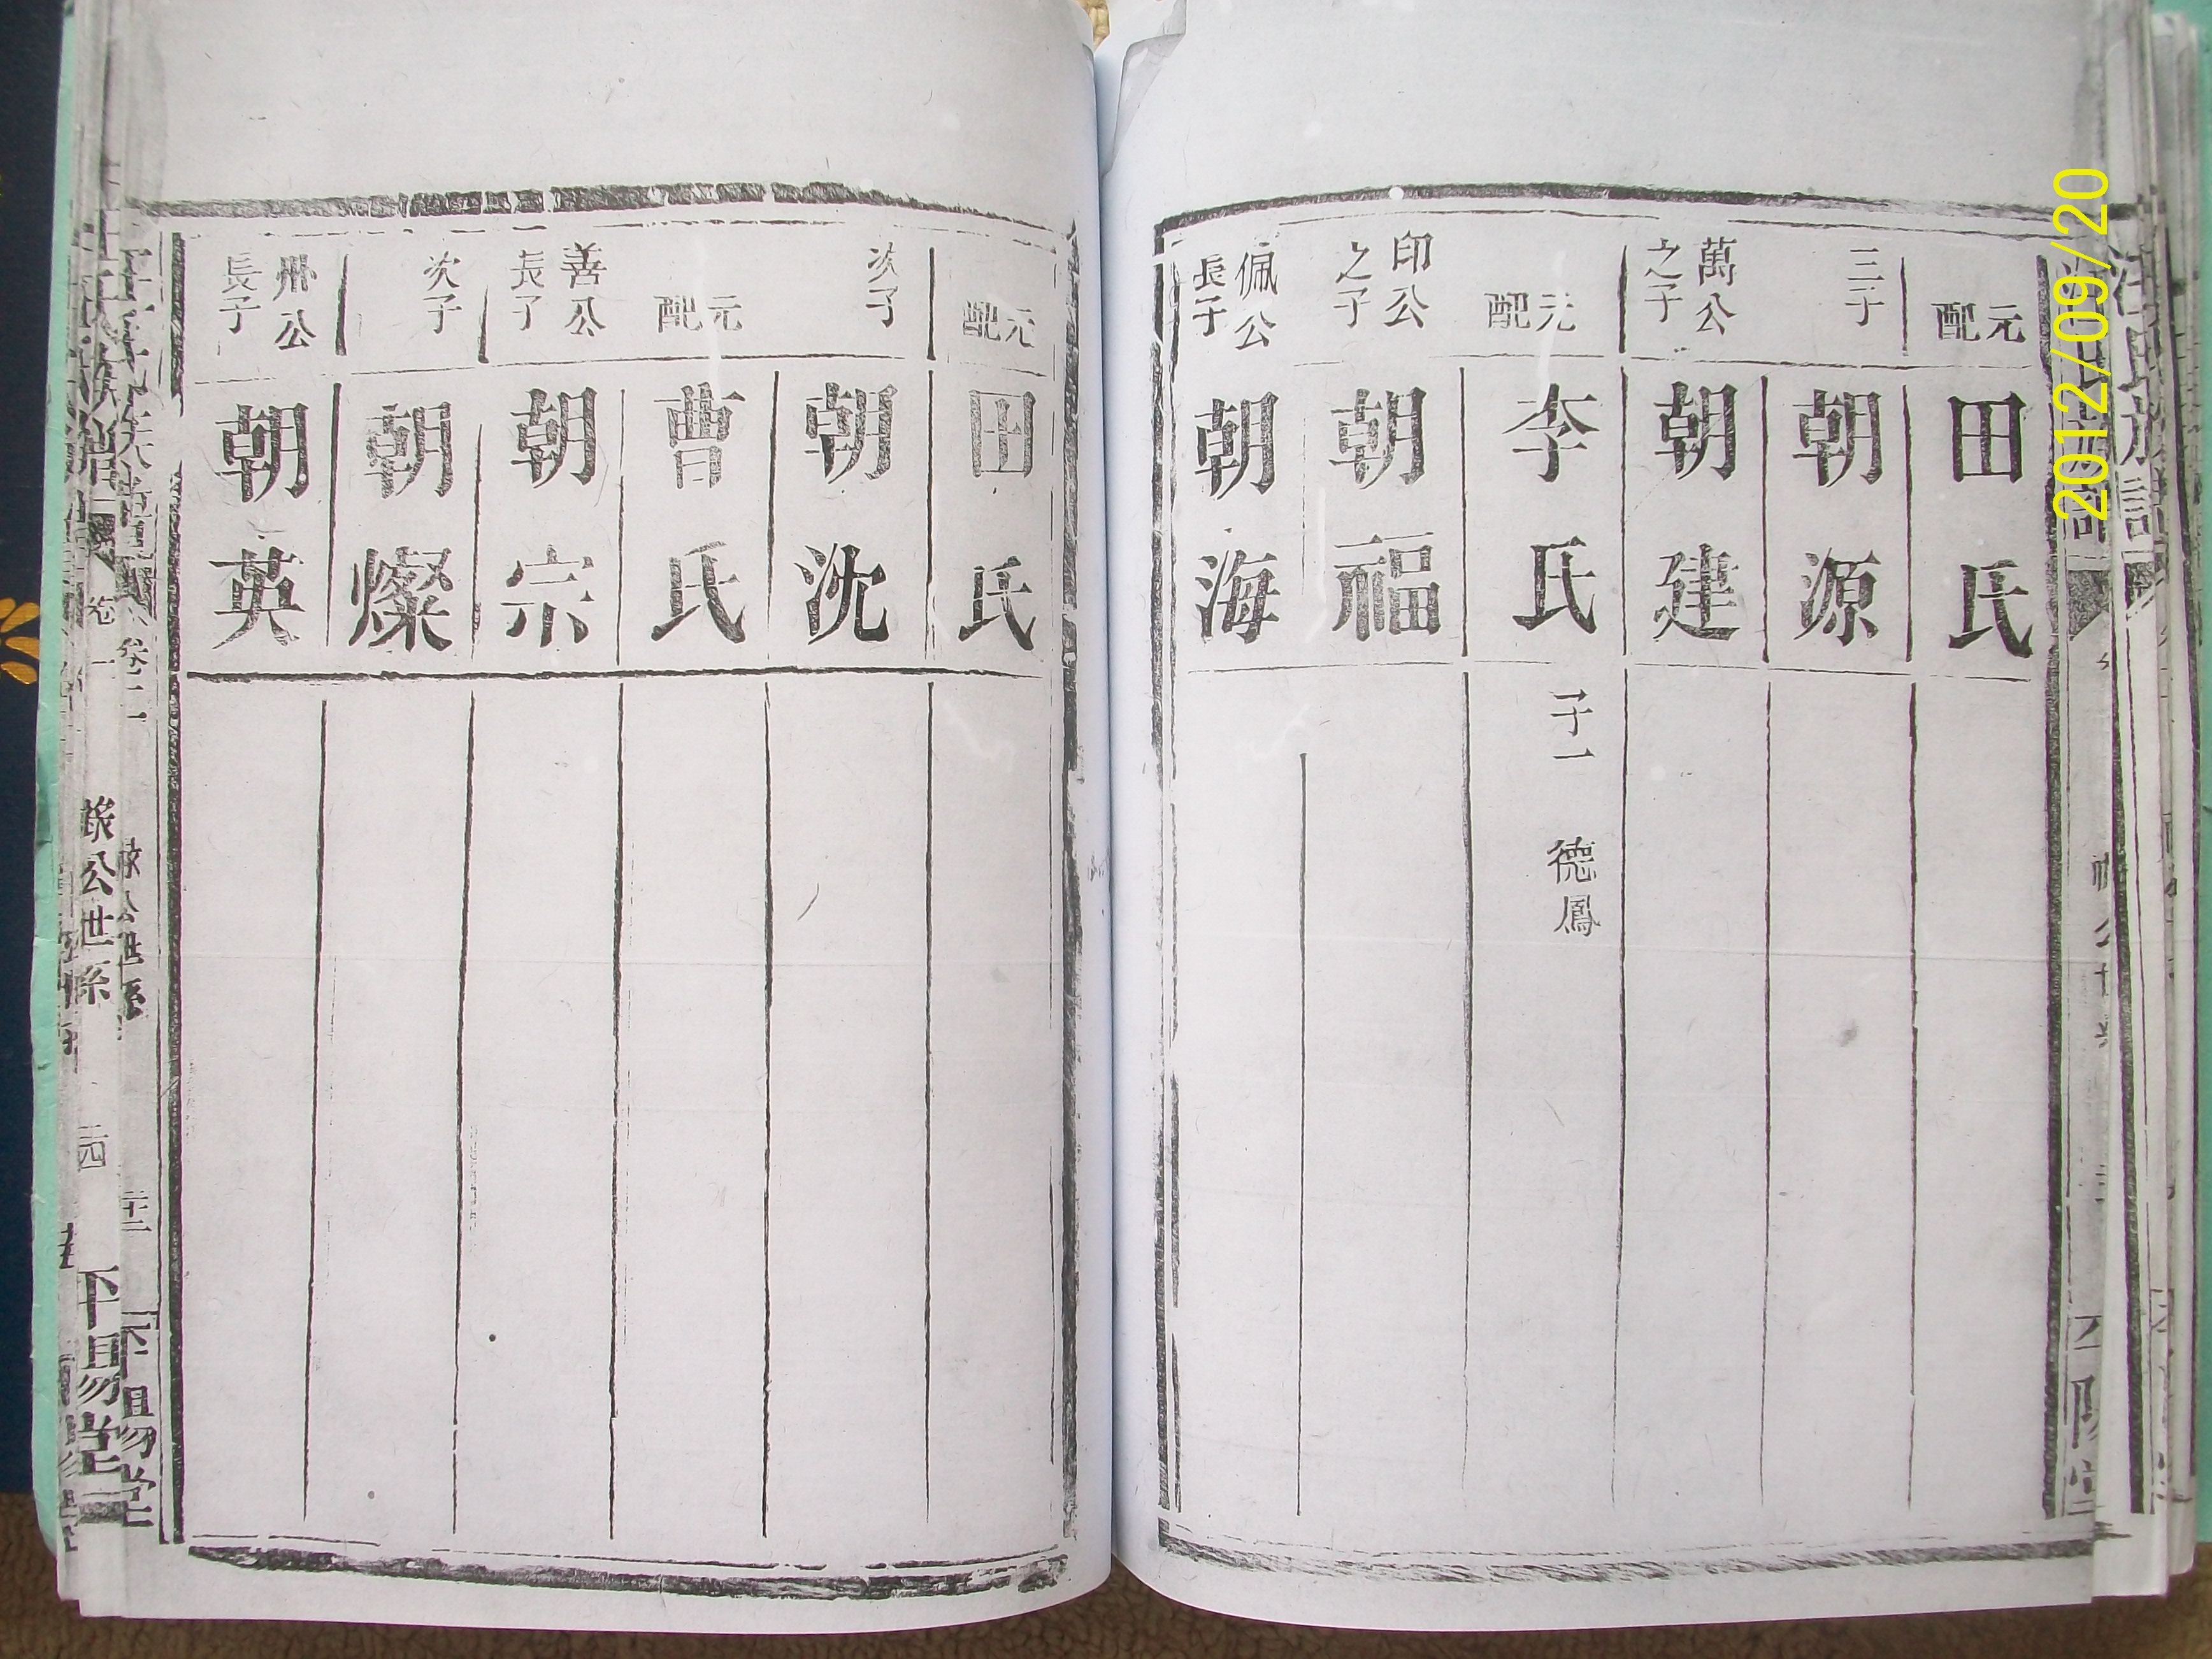 元配
田氏
三子
朝源
萬公
之子
朝建
元配
李氏
子一 德鳳
印公
之子
朝福
佩公
長子
朝海
元配
田氏
次子
朝沈
元配
曹氏
善公
長子
朝宗
次子
朝燦
州公
長子
朝英
卷二
公世系
2012/09/20